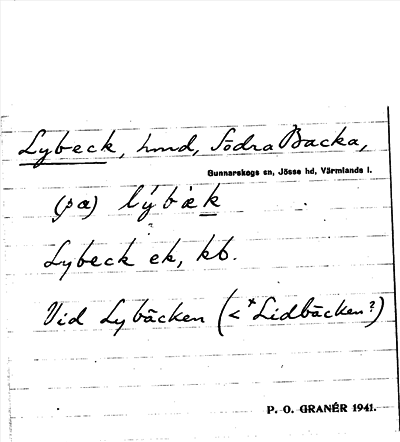 Lybeck, hmd, Södra Backa,
Gunnarskogs sn, Jösse hd, Värmlands l.
(på) lýbæk
Lybeck ek, kb.
Vid Lybäcken (<*Lidbäcken?)
P. O. GRANÉR 1941.